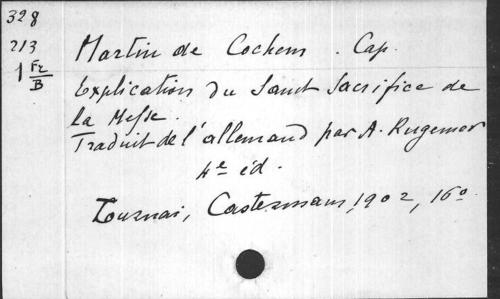 328
213
1 Fr
B
Martin de Cochem . Cap.
Explication du Saint Sacrifice de
La Messe.
Traduit de l'allemand par A. Rugemer
4e éd.
Tournai, Casterman, 1902, 16o.